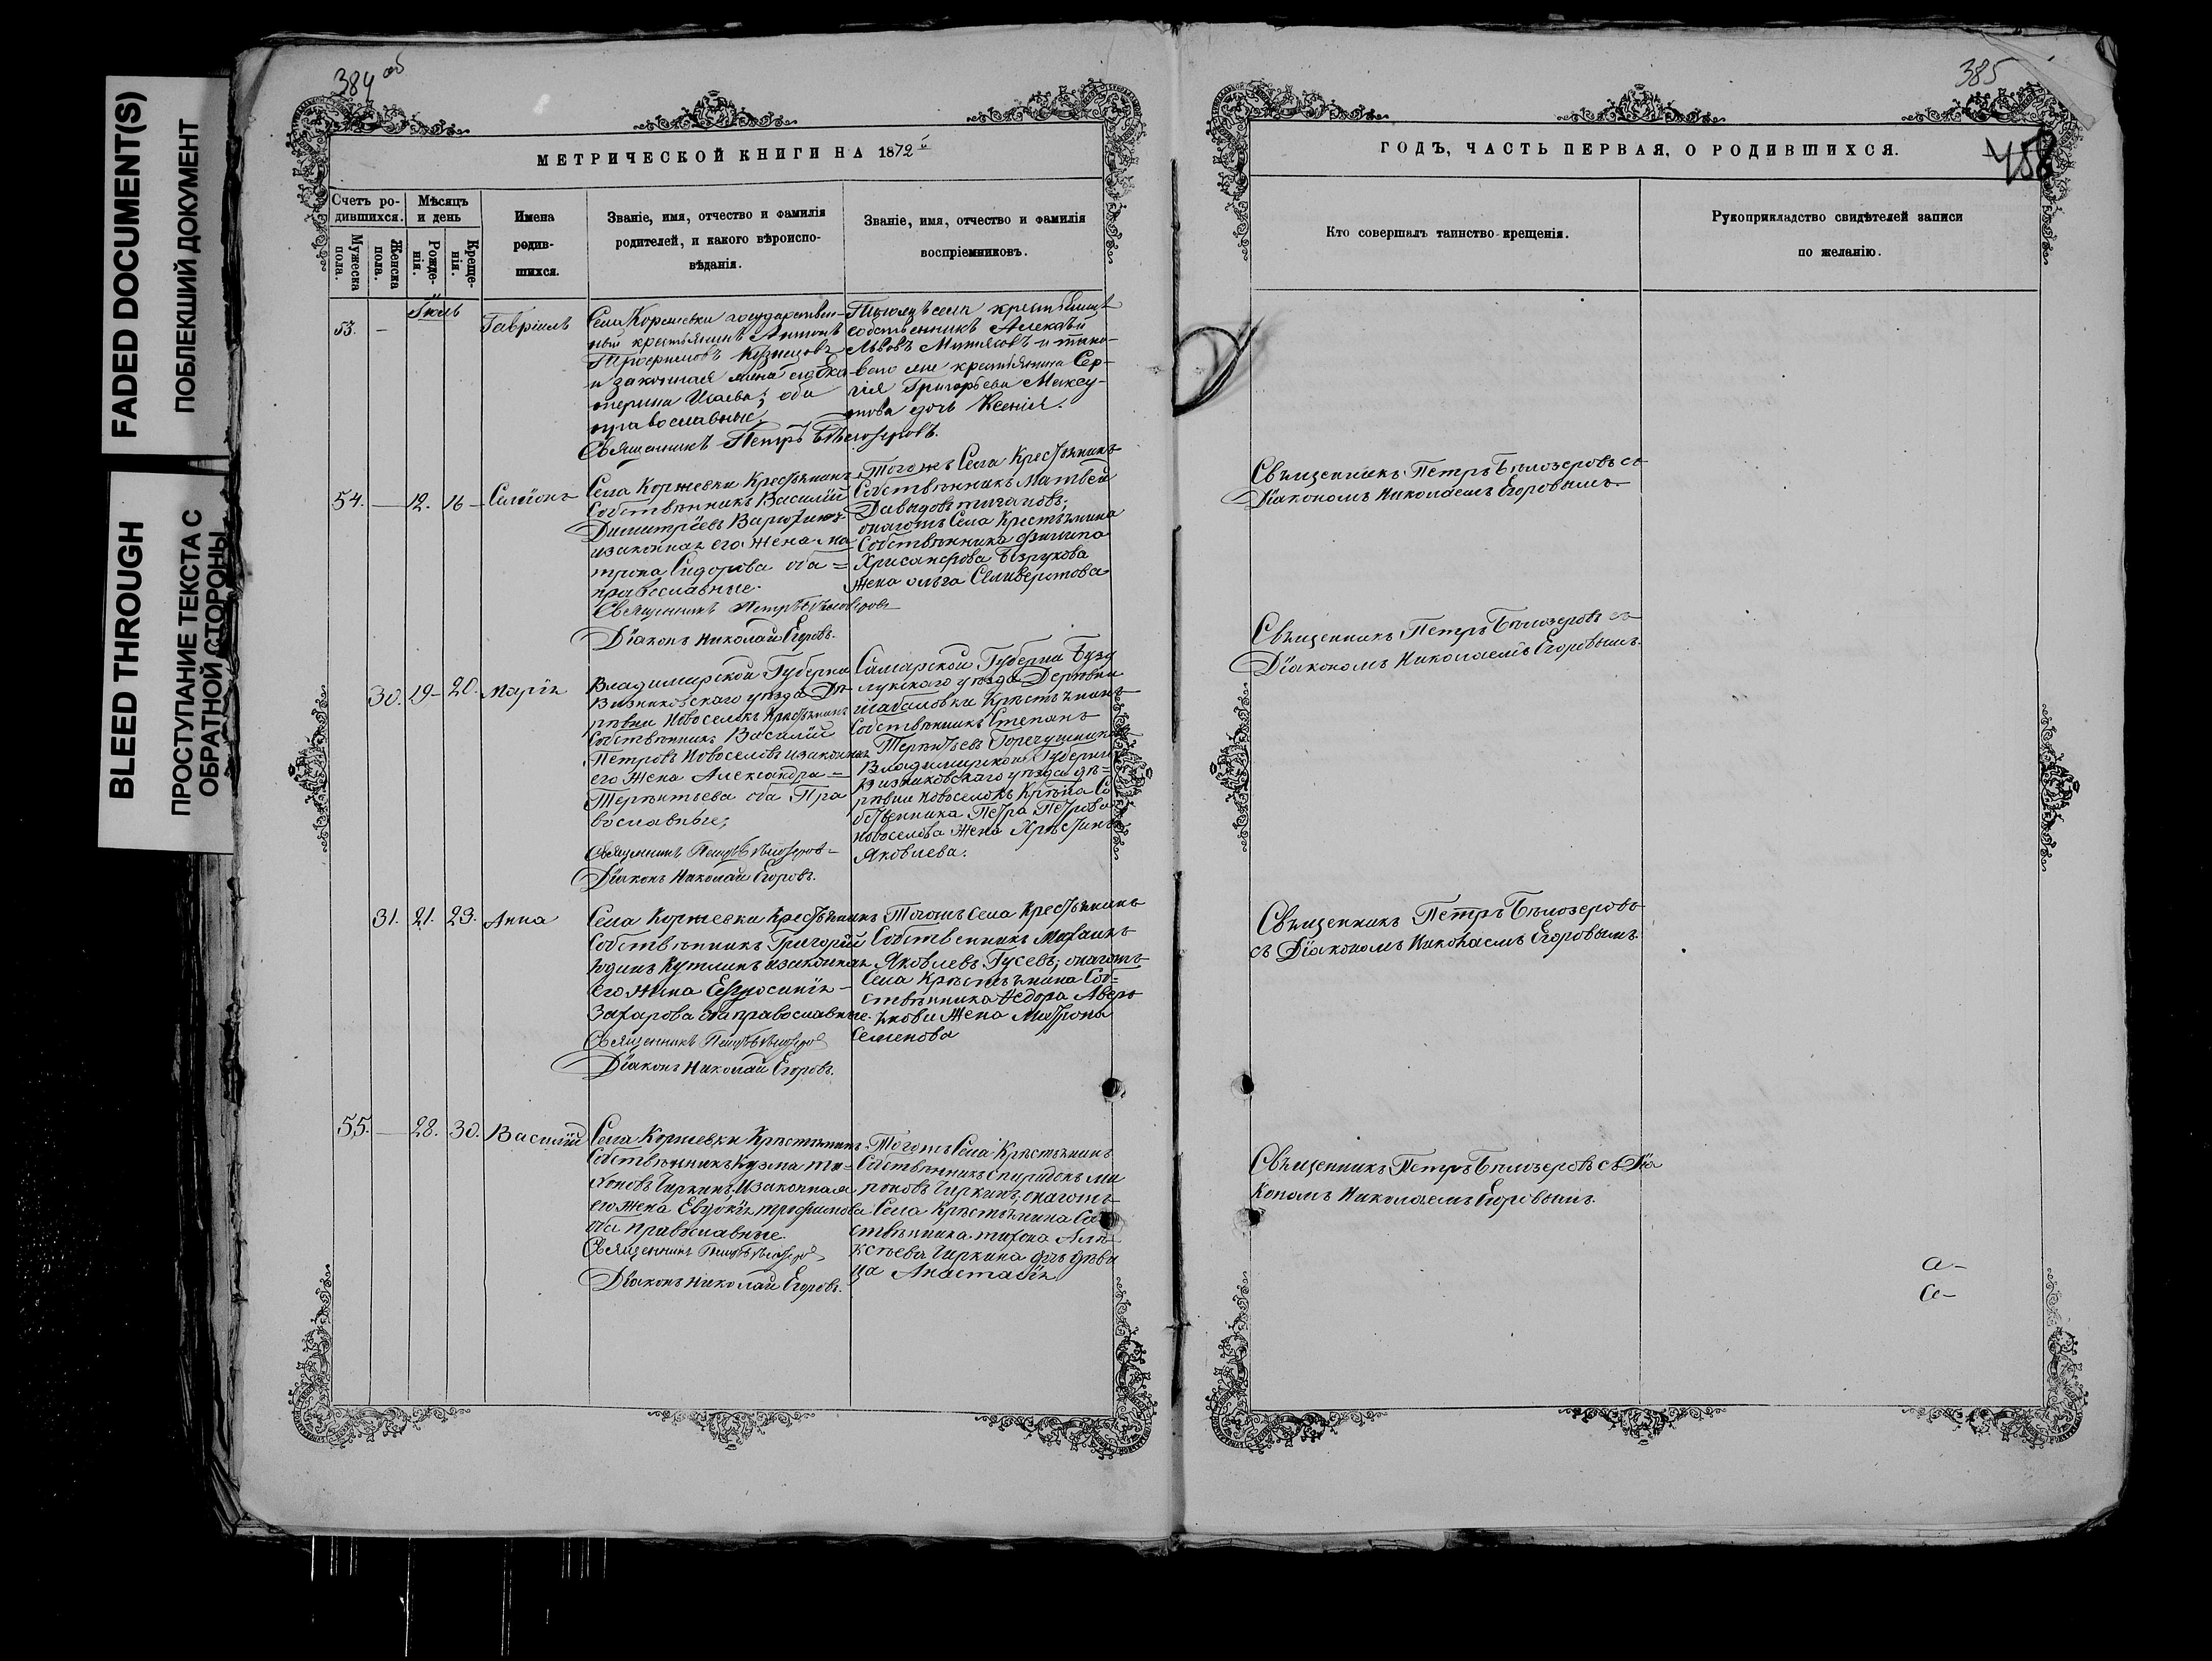 FADED DOCUMENT(S)
ПОБЛЕКШИЙ ДОКУМЕНТ
BLEED THROUGH
ПРОСТУПАНИЕ ТЕКСТА С
ОБРАТНОЙ СТОРОНЫ
384 об
МЕТРИЧЕСКОЙ КНИГИ НА 1872 й
Счетъ ро-
дившихся.
Мѣсяцъ
и день
Имена
родив-
шихся.
Званіе, имя, отчество и фамилія
родителей, и какого вѣроиспо-
вѣданія.
Званіе, имя, отчество и фамилія
воспріемниковъ.
Мужеска
пола.
Женска
пола.
Рожде-
нія.
Креще-
нія.
Іюль
53. — Гавріилъ
Села Коржевки государствен-
ный крестьянинъ Антонъ
Трофимовъ Кузнецовъ
и законная жена его Ека-
терина Исаева; оба
православные.
Священникъ Петръ Бѣлозеровъ.
Того же села крестьянинъ
собственникъ Алексѣй
Львовъ и тако-
вого же крестьянина Сер-
гія Григорьева Максу-
това дочь Ксенія.
54. — 12. 16 Симеонъ
Села Коржевки Крестьянинъ
Собственникъ Василій
Димитріевъ
и законная его жена Ма-
трона Сидорова оба =
православные.
Священникъ Петръ Бѣлозеровъ
Діаконъ Николай Егоровъ.
Тогожъ Села Крестьянинъ
Собственникъ Матвей
Давыдовъ
онагожъ Села Крестьянина
Собственника Филипа
Хрисанфова Безрукова
жена Ольга Селиверстова
30. 19 20. Марія
Владимирской Губерни
Вязниковскаго уѣзда Де-
ревни Новоселокъ Крестьянинъ
Собственникъ Василій
Петровъ Новоселовъ и законная
его Жена Александра =
Терентьева оба Пра
вославные;
Священникъ Петръ Бѣлозеровъ
Діаконъ Николай Егоровъ.
Самарской Губерни Бузу
лукскаго уѣзда Деревни
Шабаловки Крестьянинъ
Собственникъ Степанъ
Терентьевъ
Владимирской Губерни
Вязниковскаго уѣзда де=
ревни Новоселокъ Кресна Со
бственника Петра Петрова
Новоселова Жена Христина
Яковлева.
31. 21. 23. Анна
Села Коржевки Крестьянинъ
Собственникъ Григорій
Юдинъ Кутлинъ и законная
его жена Евфросинія
Захарова оба православные.
Священникъ Петръ Бѣлозеровъ
Діаконъ Николай Егоровъ.
Тогожъ Села Крестьянинъ
Собственникъ Михаилъ
Яковлевъ Гусевъ; онагожъ
Села Крестьянина Соб=
ственника Федора Аверь
янова Жена Матрона
Семенова
55. — 28. 30. Василій
Села Коржевки Крестьянинъ
Собственникъ Кузма Ти-
хоновъ Чиркинъ, и законная
его Жена Евдокія Трофимова
оба Православные.
Священникъ Петръ Бѣлозеровъ
Діаконъ Николай Егоровъ.
Тогожъ Села Крестьянинъ
Собственникъ Спиридонъ Ми
роновъ Чиркинъ, онагожъ
Села Крестьянина Со
ственника Тихона Але
ксѣева Чиркина дчь дѣви
ца Анастасія
385
458
ГОДЪ, ЧАСТЬ ПЕРВАЯ, О РОДИВШИХСЯ.
Кто совершалъ таинство крещенія.
Рукоприкладство свидѣтелей записи
по желанію.
Священникъ Петръ Бѣлозеровъ съ
Діакономъ Николаемъ Егоровымъ
Священникъ Петръ Бѣлозеровъ съ
Діакономъ Николаемъ Егоровымъ.
Священникъ Петръ Бѣлозеровъ
съ Діакономъ Николаемъ Егоровымъ.
Священникъ Петръ Бѣлозеровъ съ Діа
кономъ Николаемъ Егоровымъ.